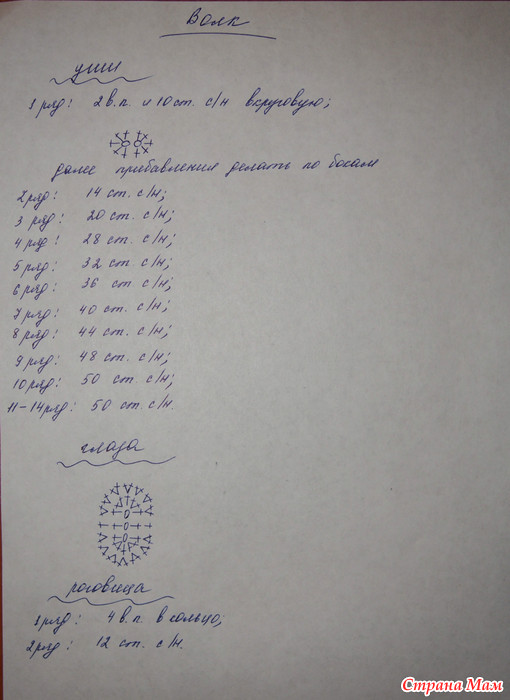 Волк
уши
1 ряд: 2 в.п. и 10 ст. с/н вкруговую;
далее прибавления делать по бокам
2 ряд: 14 ст. с/н;
3 ряд: 20 ст. с/н;
4 ряд: 28 ст. с/н;
5 ряд: 32 ст. с/н;
6 ряд: 36 ст с/н;
7 ряд: 40 ст. с/н;
8 ряд: 44 ст. с/н;
9 ряд: 48 ст. с/н;
10 ряд: 50 ст. с/н;
11-14 ряд: 50 ст. с/н.
глаза
роговица
1 ряд: 4 в.п. в кольцо;
2 ряд: 12 ст. с/н.
Страна Мам